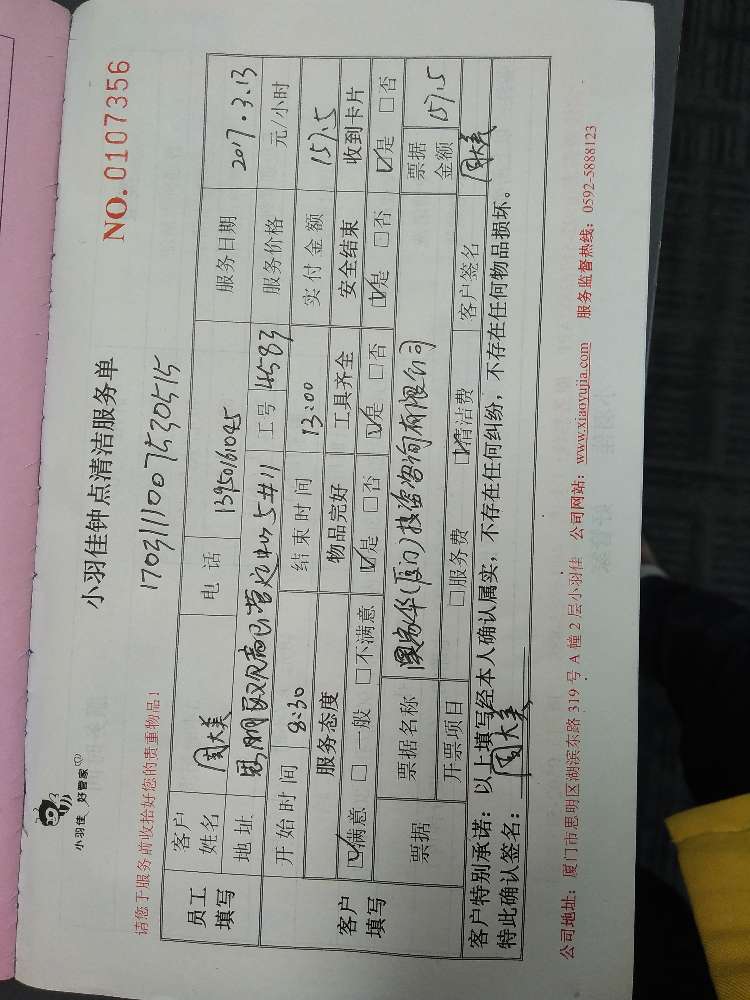 小羽佳 好管家
小羽佳钟点清洁服务单
NO. 0107356
请您于服务前收拾好您的贵重物品！
1703111007530515
员工填写 客户姓名 周大美 电话 13950161045 服务日期 2017.3.13
地址 思明区 营运中心5#11 工号 4583 服务价格 元/小时
客户填写 开始时间 8:30 结束时间 13:00 实付金额 157.5
服务态度 物品完好 工具齐全 安全结束 收到卡片
☑满意 □一般 □不满意 ☑是 □否 ☑是 □否 ☑是 □否 ☑是 □否
票据 票据名称 (厦门)投资咨询有限公司 票据金额 157.5
开票项目 □服务费 ☑清洁费 客户签名 周大美
客户特别承诺：以上填写经本人确认属实，不存在任何纠纷，不存在任何物品损坏。
特此确认签名：周大美
公司地址：厦门市思明区湖滨东路 319 号 A 幢 2 层小羽佳 公司网站：www.xiaoyujia.com 服务监督热线：0592-5888123